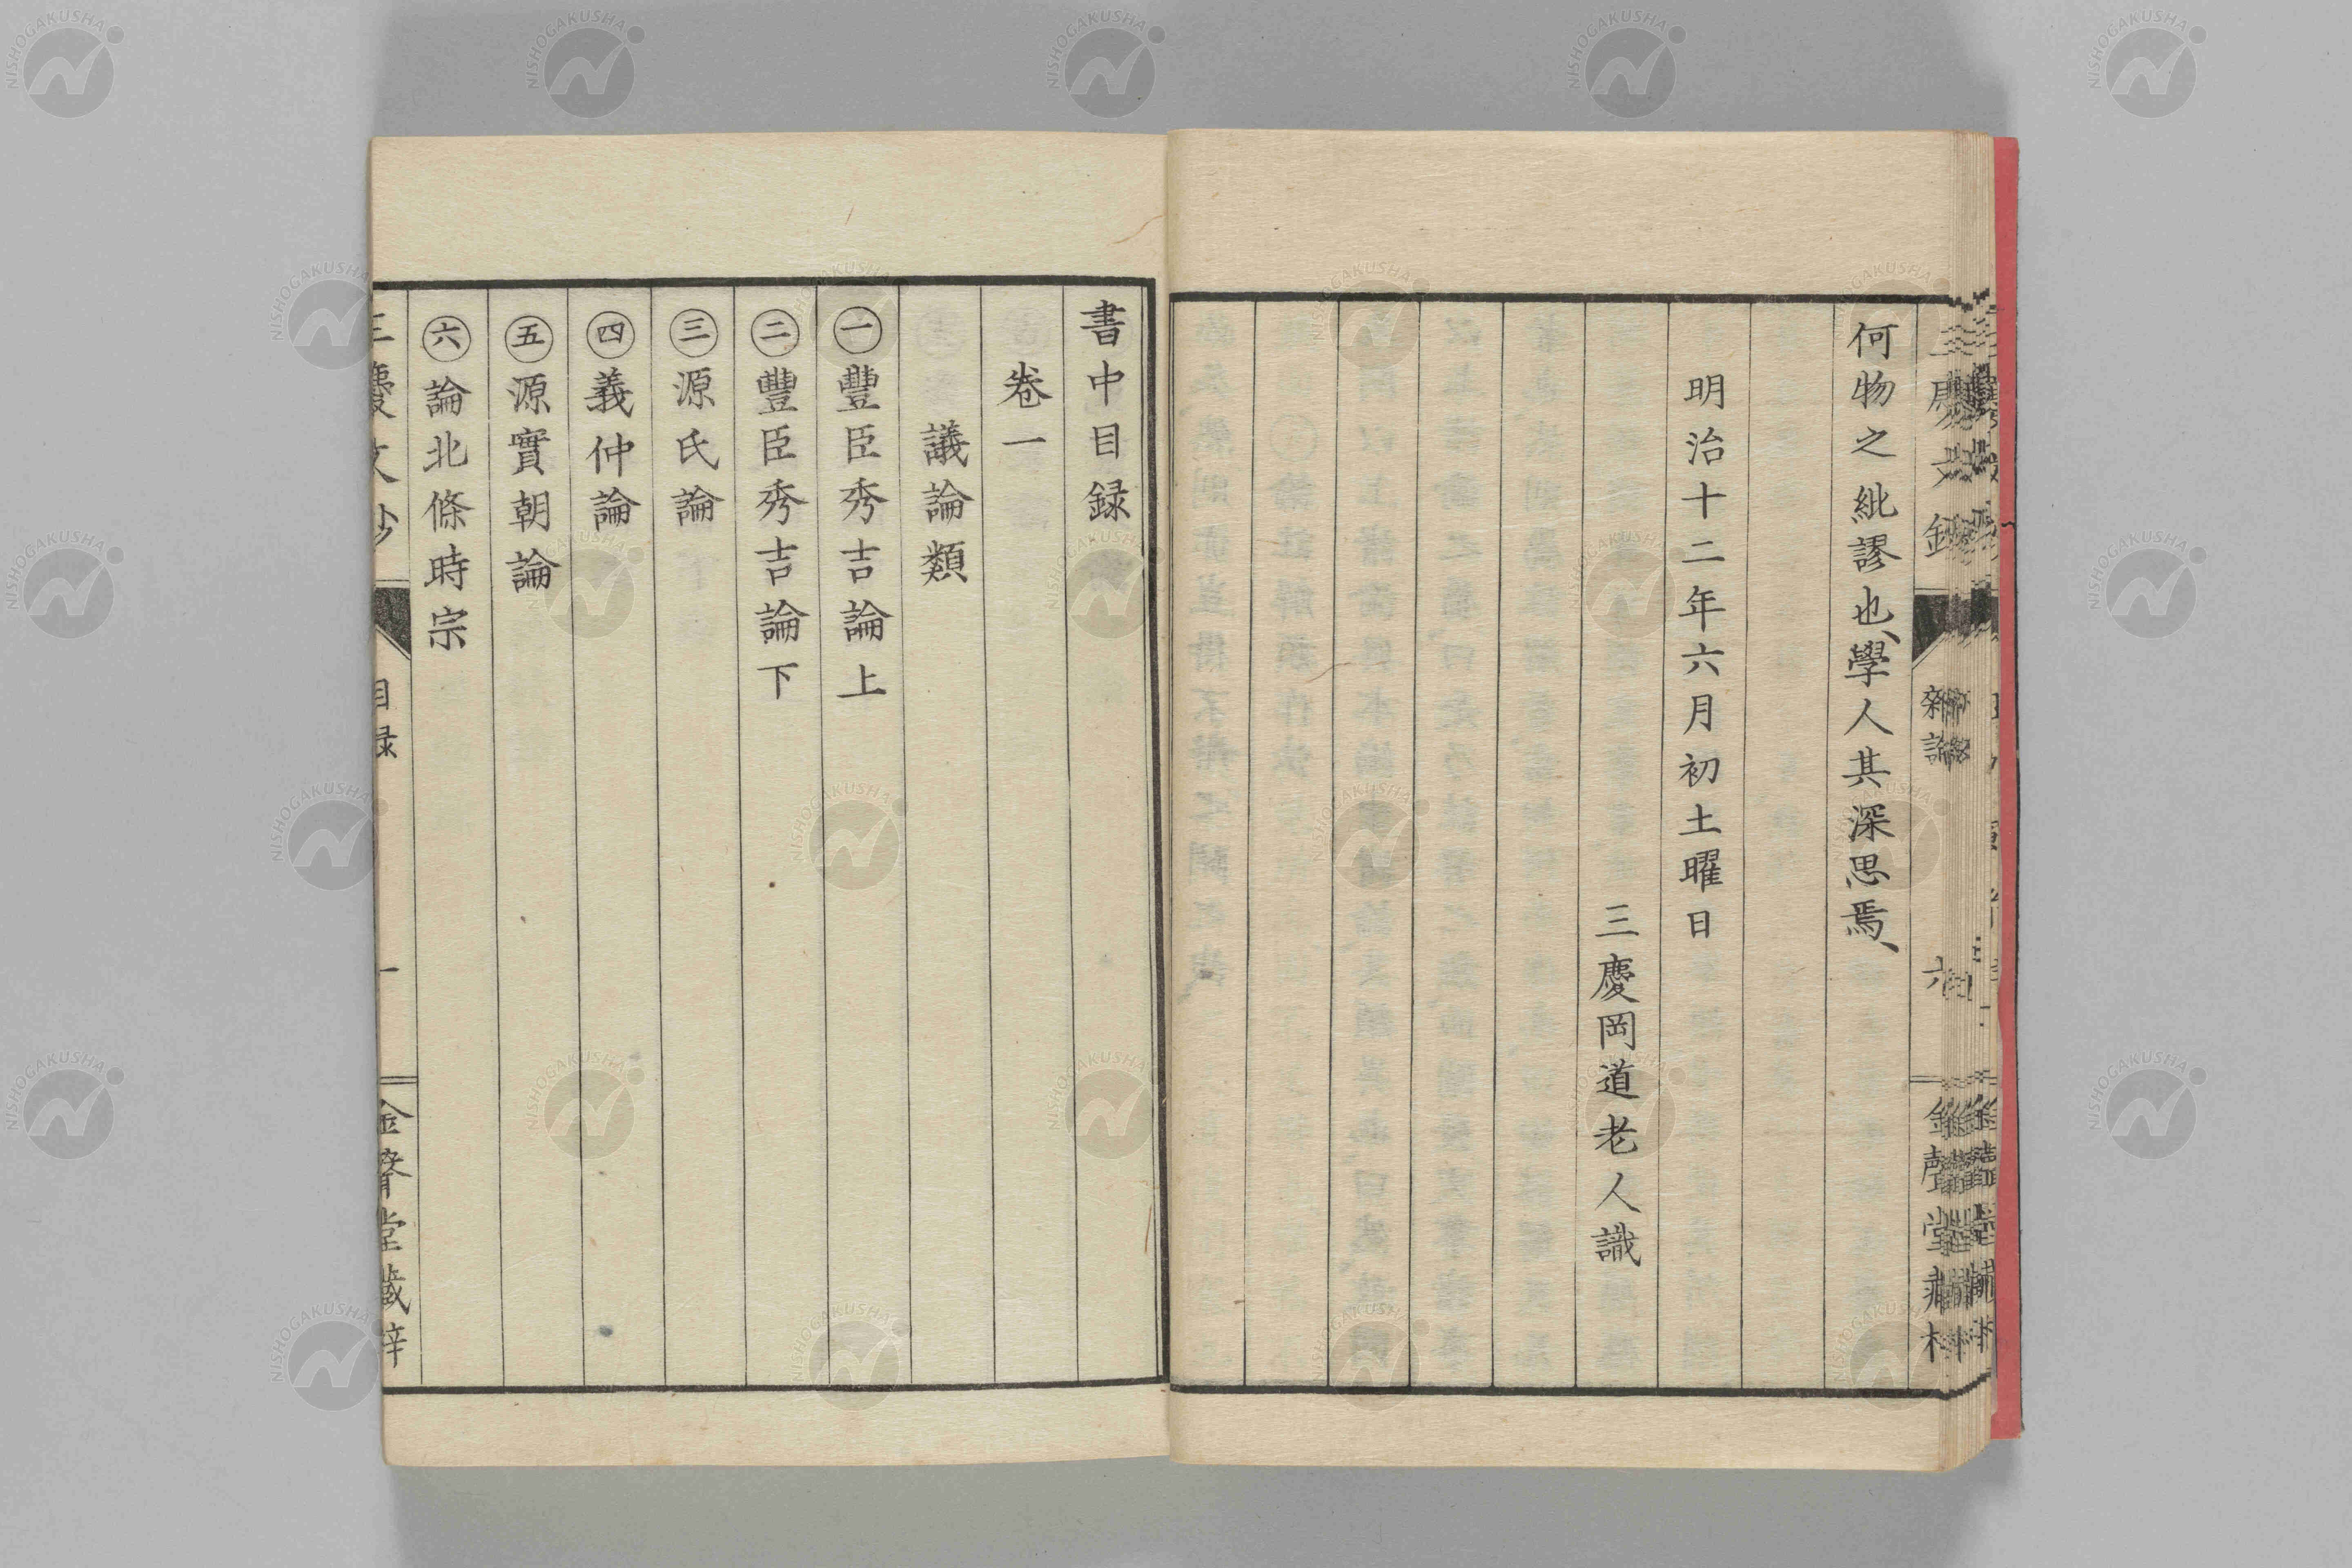 何物之紕謬也、學人其深思焉、
明治十二年六月初土曜日
三慶岡道老人識
書中目録
卷一
議論類
㊀豐臣秀吉論上
㊁豐臣秀吉論下
㊂源氏論
㊃義仲論
㊄源實朝論
㊅論北條時宗
三慶文鈔 目録 一 金聲堂藏梓
NISHOGAKUSHA